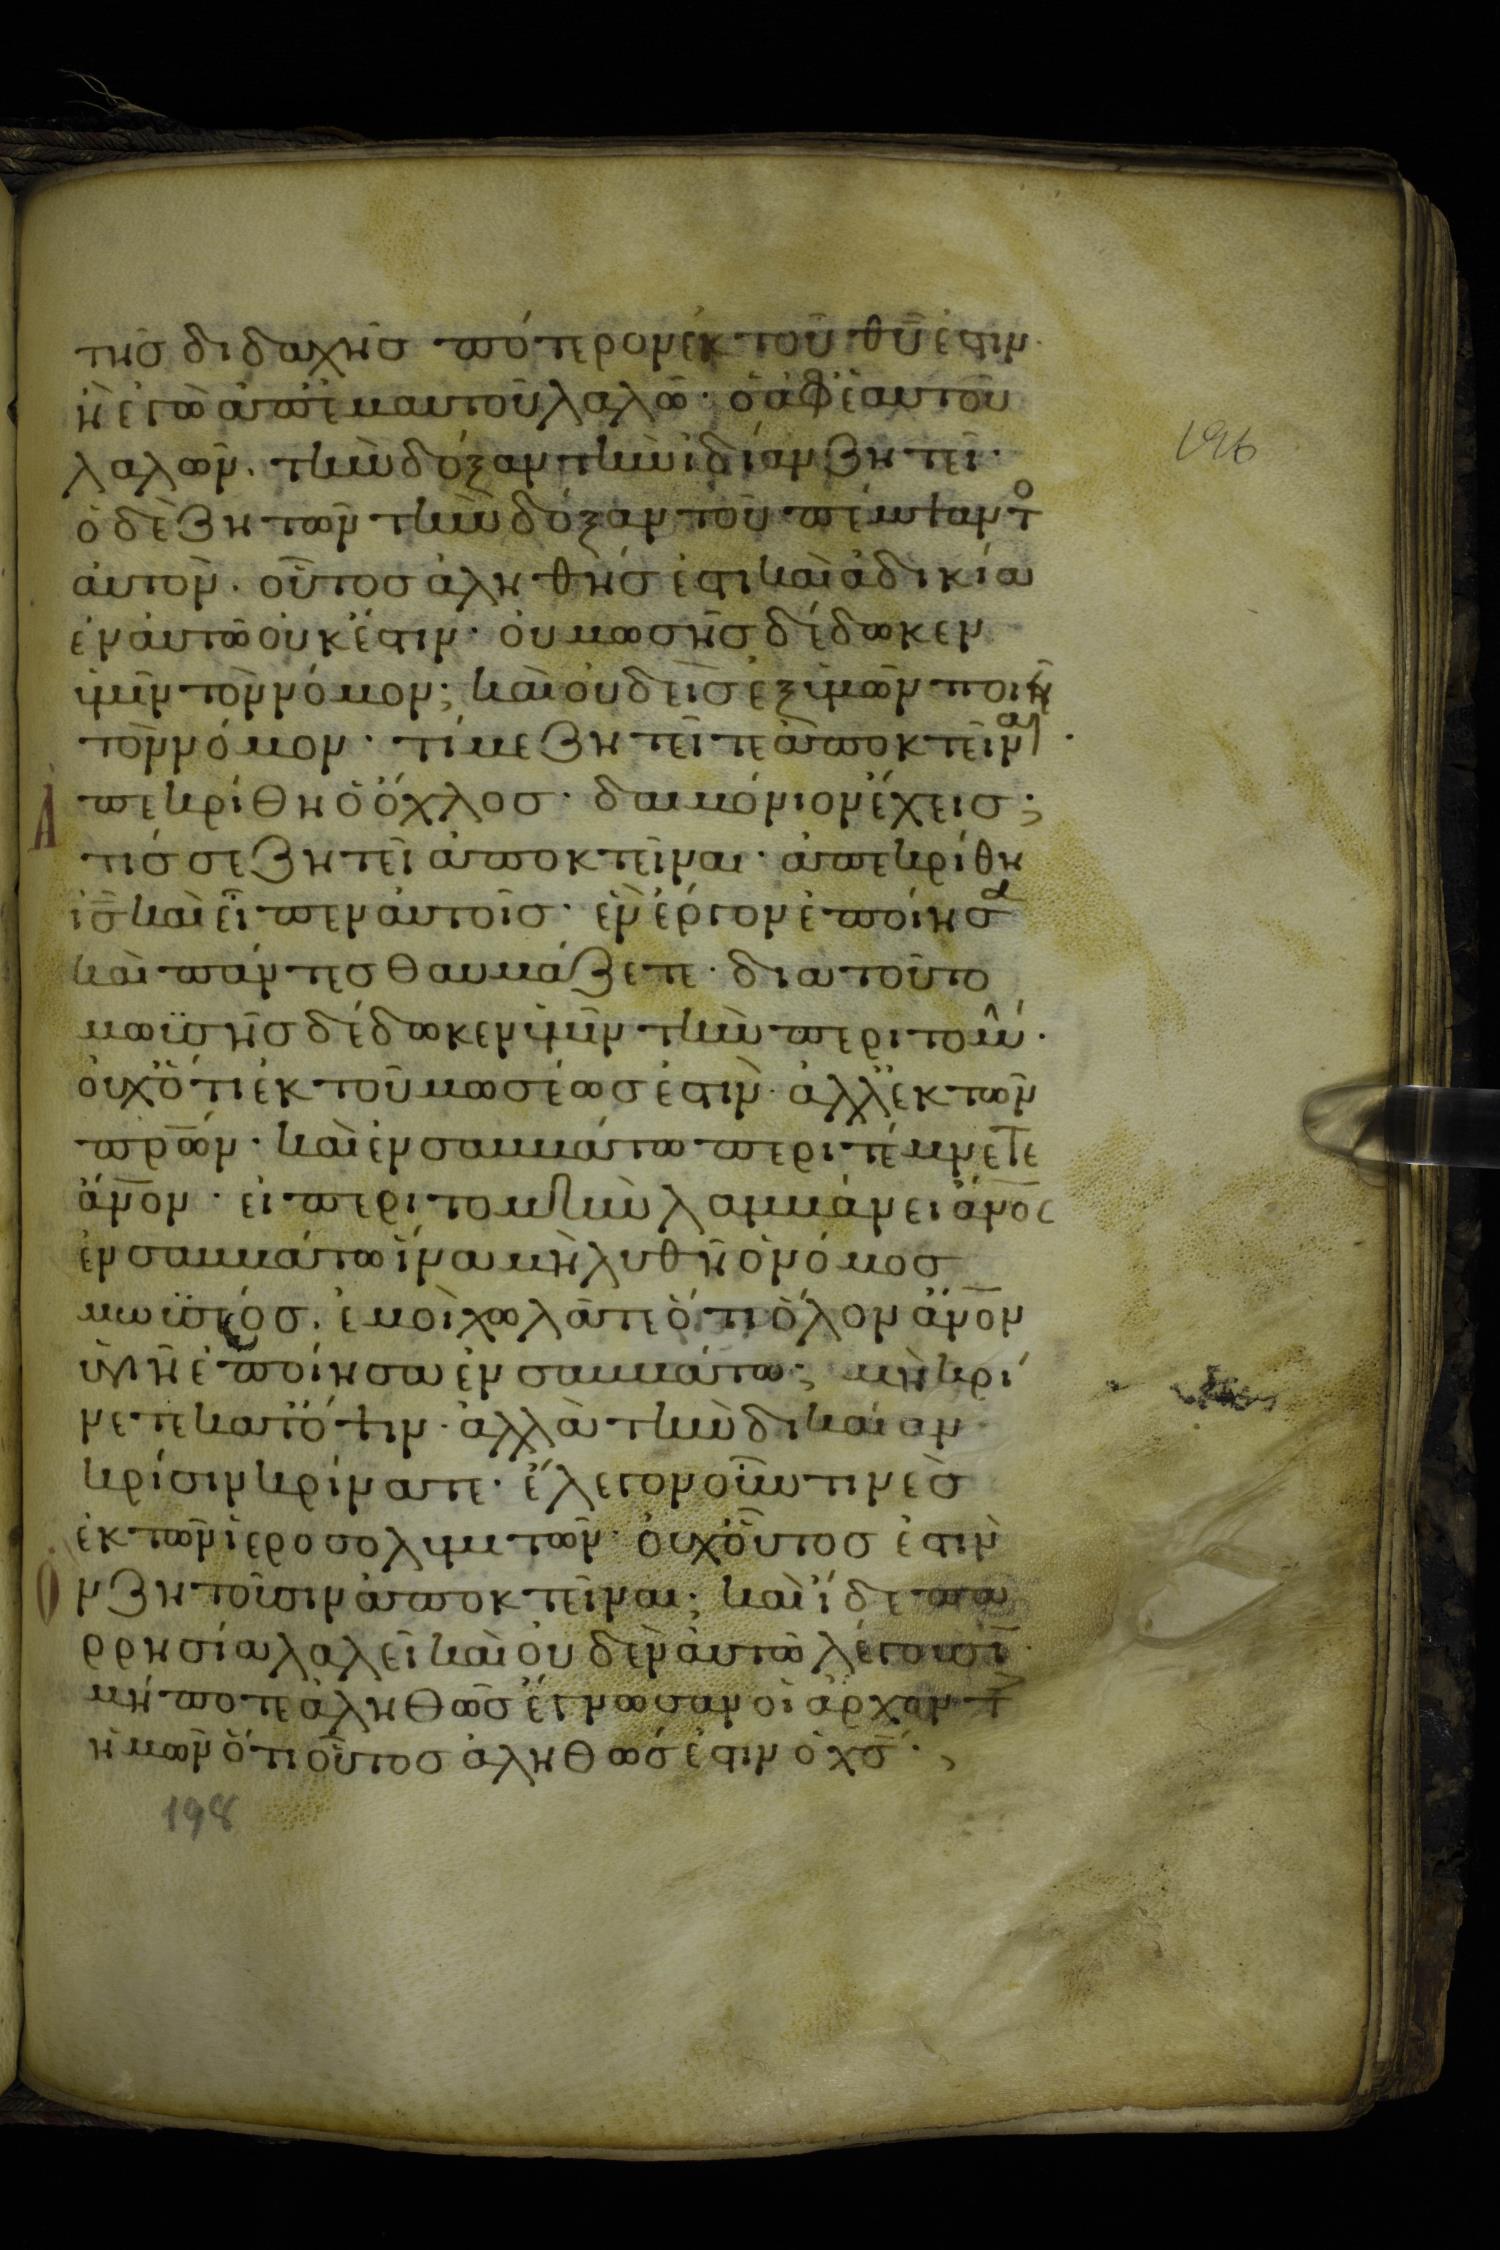 τῆς διδαχῆς πότερον ἐκ τοῦ θῡ ἐστιν·
ἢ ἐγὼ ἀπ' ἐμαυτοῦ λαλῶ· ὁ ἀφ' ἑαυτοῦ
λαλῶν. τὴν δόξαν τὴν ἰδίαν ζητεῖ·
196
ὁ δὲ ζητῶν τὴν δόξαν τοῦ πέμψαντο
αὐτὸν. οὗτος ἀληθής ἐστι καὶ ἀδικία
ἐν αὐτῶ οὐκ ἔστιν· οὐ μωσῆς δέδωκεν
ὑμῖν τὸν νόμον; καὶ οὐδεὶς ἐξ ὑμῶν ποιεῖ
τὸν νόμον· τί με ζητεῖτε ἀποκτεῖναι·
Ἀπεκρίθη ὁ ὄχλος· δαιμόνιον ἔχεις;
τίς σε ζητεῖ ἀποκτεῖναι· ἀπεκρίθη
ἰς̄ καὶ εἶπεν αὐτοῖς· ἓν ἔργον ἐποίησα
καὶ πάντες θαυμάζετε· δια τοῦτο
μωϋσῆς δέδωκεν ὑμῖν τὴν περιτομήν·
οὐχ ὅτι ἐκ τοῦ μωσέως ἐστὶν· ἀλλ' ἐκ τῶν
πρ̄ων· καὶ ἐν σαββάτω περιτέμνετε
ἄνο̄ν· εἰ περιτομὴν λαμβάνει ἄνο̄ς
ἐν σαββάτω ἵνα μὴ λυθῆ ὁ νόμος
μωϋσέος. ἐμοὶ χολᾶτε ὅτι ὅλον ἄνο̄ν
ὑγιῆ ἐποίησα ἐν σαββάτω; μὴ κρί
νετε κατ' ὄψιν· ἀλλὰ τὴν δικαίαν
κρίσιν κρίνατε· ἔλεγον οὖν τινὲς
ἐκ τῶν ἱεροσολυμιτῶν· οὐχ οὗτος ἐστὶν
Ὃν ζητοῦσιν ἀποκτεῖναι; καὶ ἴδε πα
ρρησία λαλεῖ καὶ οὐδὲν αὐτῶ λέγουσῑ·
μήποτε ἀληθῶς ἔγνωσαν οἱ ἄρχοντ
ἡμῶν ὅτι οὗτος ἀληθῶς ἐστιν ὁ χς̄·
198